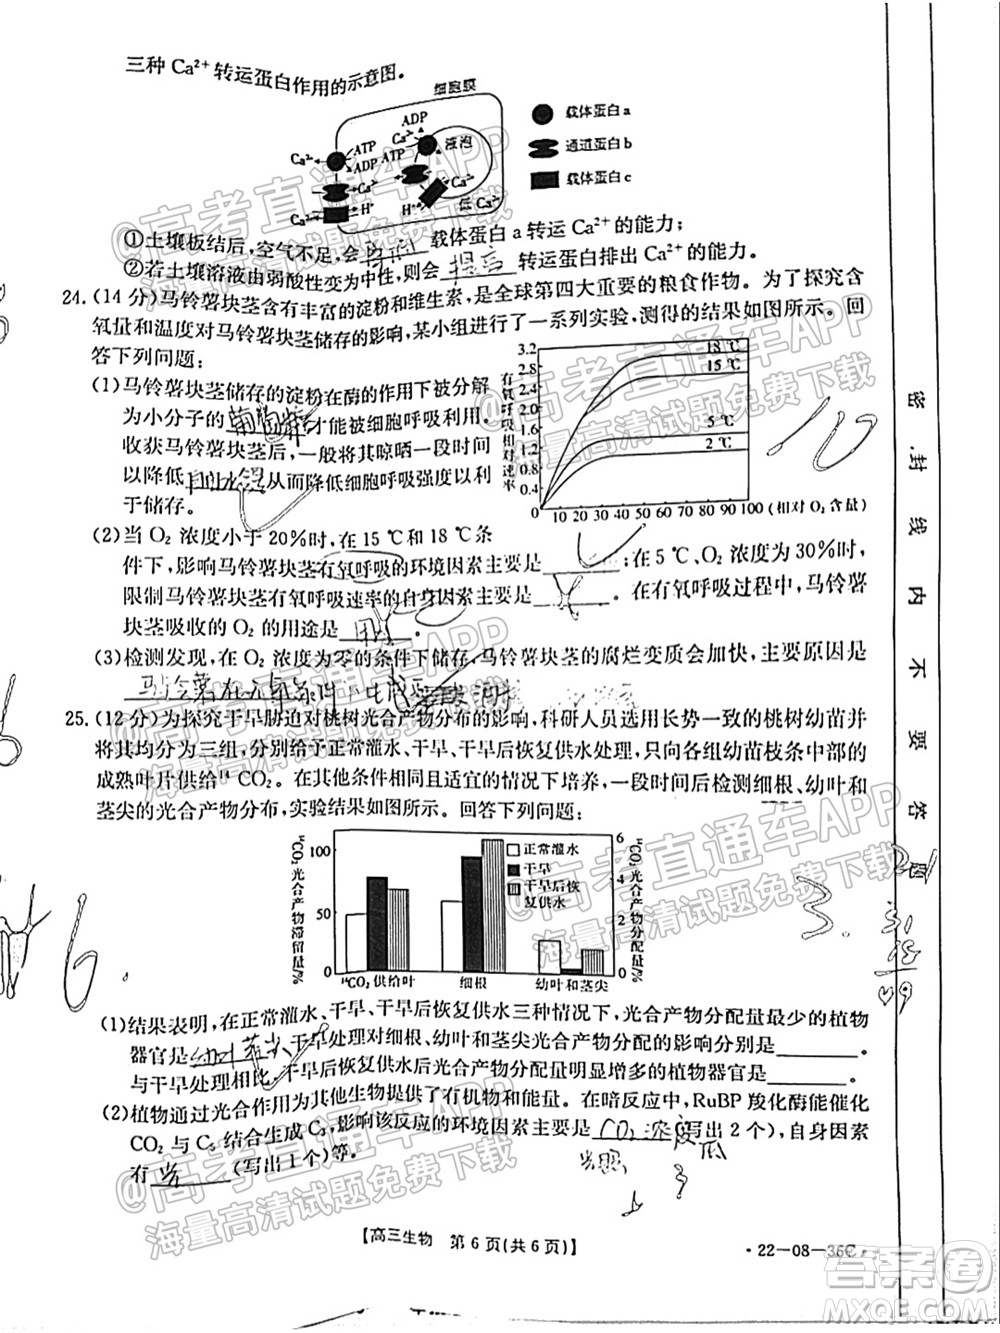 三种 Ca²⁺ 转运蛋白作用的示意图。
细胞膜
ADP
Ca²⁺
ATP
液泡
载体蛋白a
Ca²⁺
ATP
ADP
通道蛋白b
Ca²⁺
Ca²⁺
载体蛋白c
Ca²⁺
H⁺
H⁺
低 Ca²⁺
①土壤板结后,空气不足,会 载体蛋白 a 转运 Ca²⁺ 的能力;
②若土壤溶液由弱酸性变为中性,则会 提高 转运蛋白排出 Ca²⁺ 的能力。
24.(14 分)马铃薯块茎含有丰富的淀粉和维生素,是全球第四大重要的粮食作物。为了探究含
氧量和温度对马铃薯块茎储存的影响,某小组进行了一系列实验,测得的结果如图所示。回
答下列问题:
(1)马铃薯块茎储存的淀粉在酶的作用下被分解
为小分子的 葡萄糖 才能被细胞呼吸利用。
收获马铃薯块茎后,一般将其晾晒一段时间
以降低 自由水 从而降低细胞呼吸强度有利
于储存。
有氧呼吸相对速率
3.2
2.8
2.4
2.0
1.6
1.2
0.8
0.4
0
18 ℃
15 ℃
5 ℃
2 ℃
10 20 30 40 50 60 70 80 90 100 (相对 O₂ 含量)
(2)当 O₂ 浓度小于 20%时,在 15 ℃和 18 ℃条
件下,影响马铃薯块茎有氧呼吸的环境因素主要是 ;在 5 ℃、O₂ 浓度为 30%时,
限制马铃薯块茎有氧呼吸速率的自身因素是 。在有氧呼吸过程中,马铃薯
块茎吸收的 O₂ 的用途是 。
(3)检测发现,在 O₂ 浓度为零的条件下储存,马铃薯块茎的腐烂变质会加快,主要原因是
马铃薯在无氧条件下
25.(12 分)为探究干旱胁迫对桃树光合产物分布的影响,科研人员选用长势一致的桃树幼苗并
将其均分为三组,分别给予正常灌水、干旱、干旱后恢复供水处理,只向各组幼苗枝条中部的
成熟叶片供给¹⁴CO₂。在其他条件相同且适宜的情况下培养,一段时间后检测细根、幼叶和
茎尖的光合产物分布,实验结果如图所示。回答下列问题:
¹⁴CO₂光合产物滞留量/%
100
50
0
正常灌水
干旱
干旱后恢复供水
6
4
2
0
¹⁴CO₂光合产物分配量/%
¹⁴CO₂供给叶 细根 幼叶和茎尖
(1)结果表明,在正常灌水、干旱、干旱后恢复供水三种情况下,光合产物分配量最少的植物
器官是 幼叶茎尖 干旱处理对细根、幼叶和茎尖光合产物分配的影响分别是 。
与干旱处理相比,干旱后恢复供水后光合产物分配量明显增多的植物器官是 。
(2)植物通过光合作用为其他生物提供了有机物和能量。在暗反应中,RuBP 羧化酶能催化
CO₂ 与 C₅ 结合生成 C₃,影响该反应的环境因素主要是 CO₂浓度 (写出 2 个),自身因素
有 (写出 1 个)等。
光照
【高三生物 第 6 页(共 6 页)】
·22-08-36C·
密封线内不要答题
@高考直通车APP
海量高清试题免费下载
答案圈
MXQE.COM